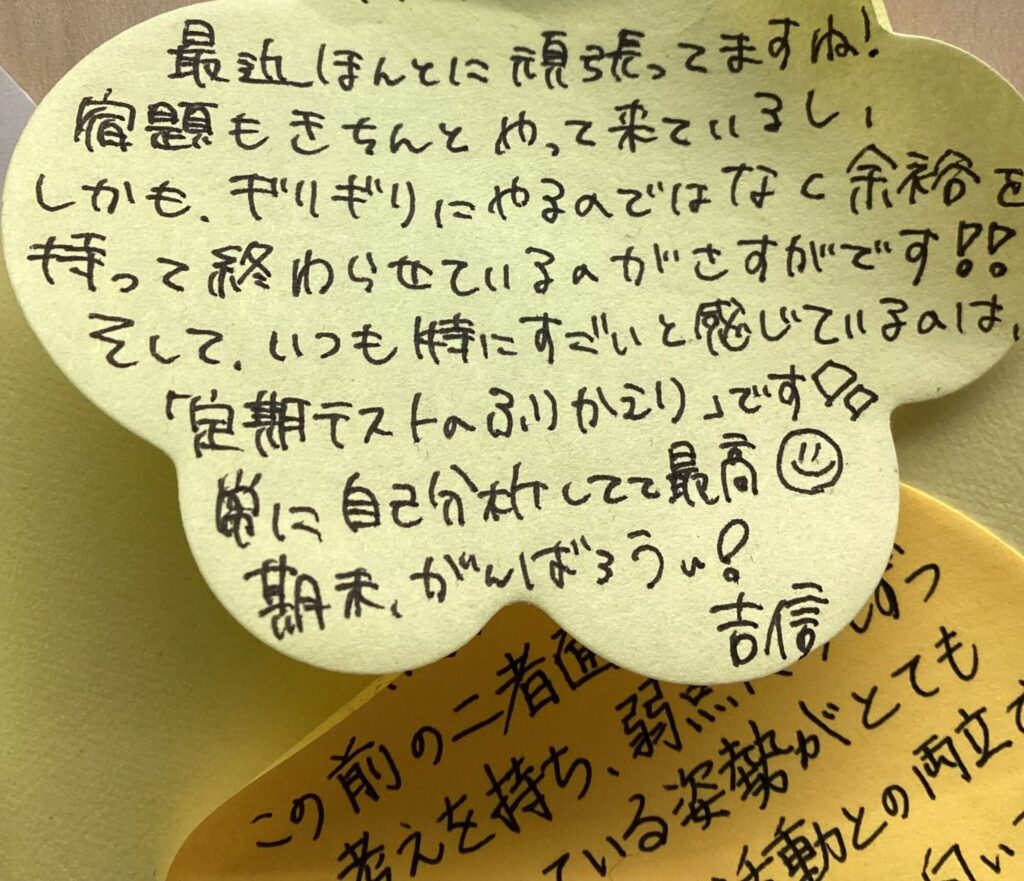 最近ほんとに頑張ってますね!
宿題もきちんとやって来ているし、
しかも、ギリギリにやるのではなく余裕を
持って終わらせているのがさすがです!!
そして、いつも特にすごいと感じているのは、
「定期テストのふりかえり」です
常に自己分析してて最高
期末、がんばろうぃ!
吉信
ずつ
この前の二者面
考えを持ち、弱点
ている姿勢がとても
活動との両立
向い